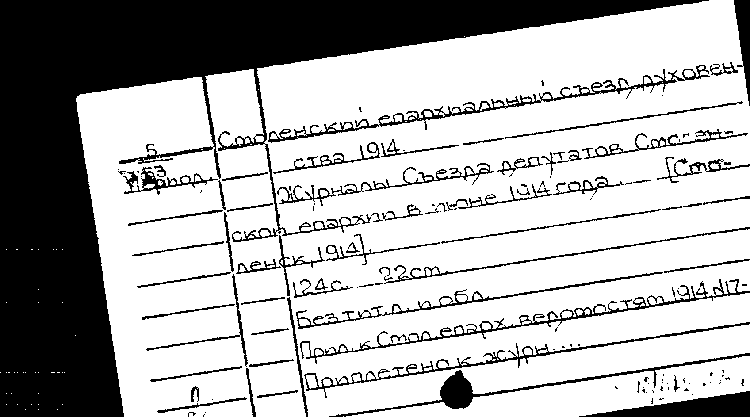 Смоленский епархиальный съезд духовен-
ства 1914.
Период.
Журналы Съезда депутатов Смолен-
ской епархии в июне 1914 года. [Смо-
ленск, 1914].
124с. 22см.
Без тит.л. и обл.
Прил. к Смол. епарх. ведомостям 1914, №17-
Приплетено к журн....